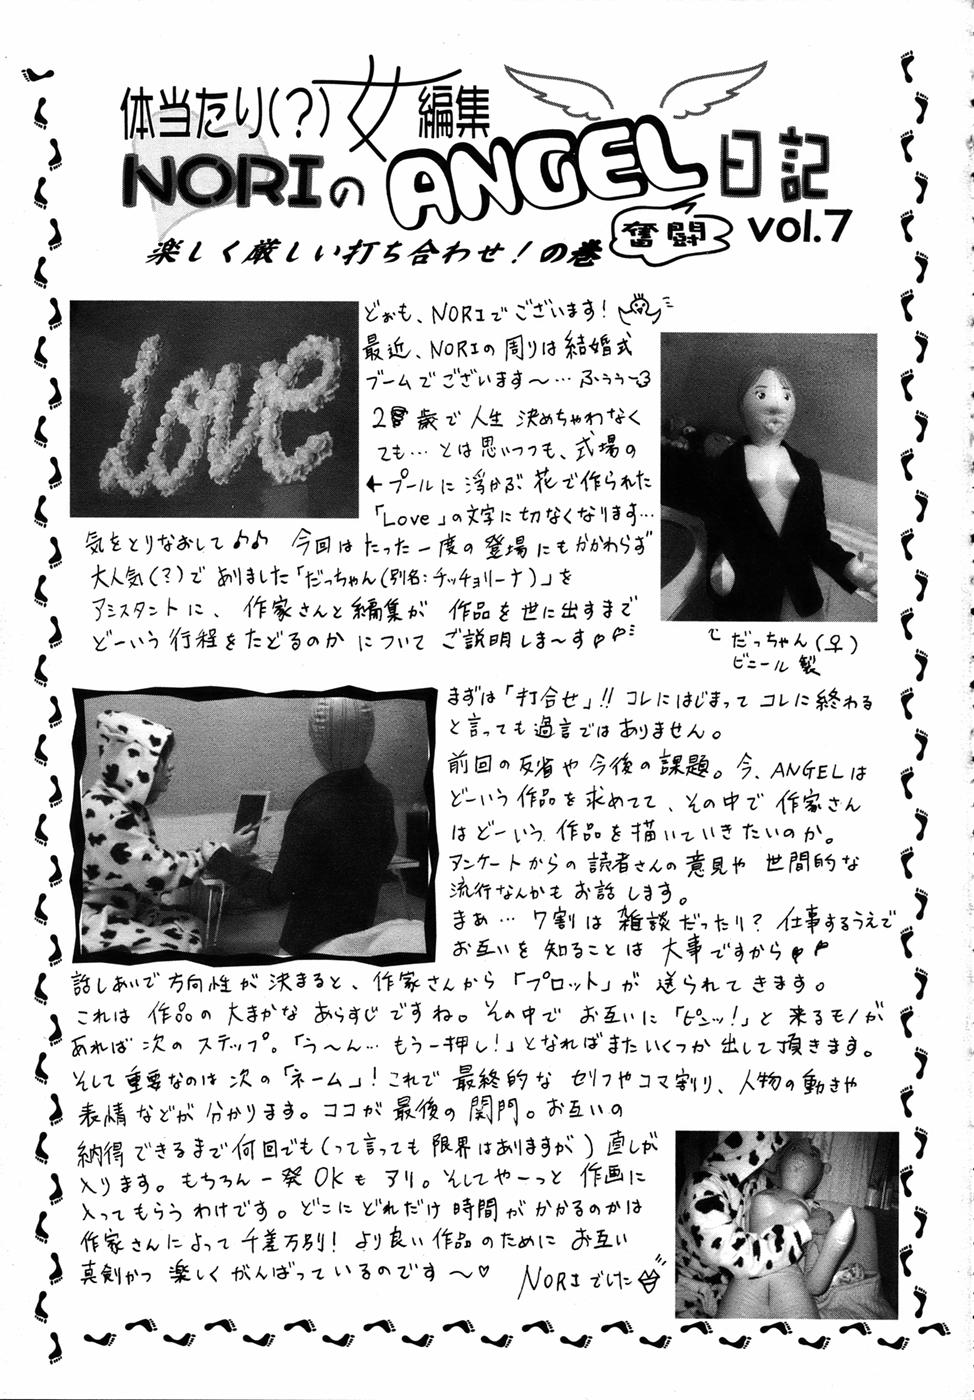 体当たり(?)女編集
NORIのANGEL日記
奮闘
vol.7
楽しく厳しい打ち合わせ!の巻
どぉも、NORIでございます!
最近、NORIの周りは結婚式
ブームでございます〜…ふぅぅ〜
歳で人生決めちゃわなく
ても…とは思いつつも、式場の
←プールに浮かぶ花で作られた
「Love」の文字に切なくなります…
気をとりなおして♪♪ 今回はたった一度の登場にもかかわらず
大人気(?)でありました「だっちゃん(別名:チッチョリーナ)」を
アシスタントに、作家さんと編集が作品を世に出すまで
どーいう行程をたどるのかについてご説明しま〜す
だっちゃん(♀)
ビニール製
まずは「打合せ」!! コレにはじまってコレに終わる
と言っても過言ではありません。
前回の反省や今後の課題。今、ANGELは
どーいう作品を求めてて、その中で作家さん
はどーいう作品を描いていきたいのか。
アンケートからの読者さんの意見や世間的な
流行なんかもお話します。
まぁ…7割は雑談だったり?仕事するうえで
お互いを知ることは大事ですから
話しあいで方向性が決まると、作家さんから「プロット」が送られてきます。
これは作品の大まかなあらすじですね。その中でお互いに「ピンッ!」と来るモノが
あれば次のステップ。「う〜ん…もう一押し!」となればまたいくつか出して頂きます。
そして重要なのは次の「ネーム」!これで最終的なセリフやコマ割り、人物の動きや
表情などが分かります。ココが最後の関門。お互いの
納得できるまで何回でも(って言っても限界はありますが)直しが
入ります。もちろん一発OKもアリ。そしてやーっと作画に
入ってもらうわけです。どこにどれだけ時間がかかるのかは
作家さんによって千差万別!より良い作品のためにお互い
真剣かつ楽しくがんばっているのです〜♡
NORIでした
Love